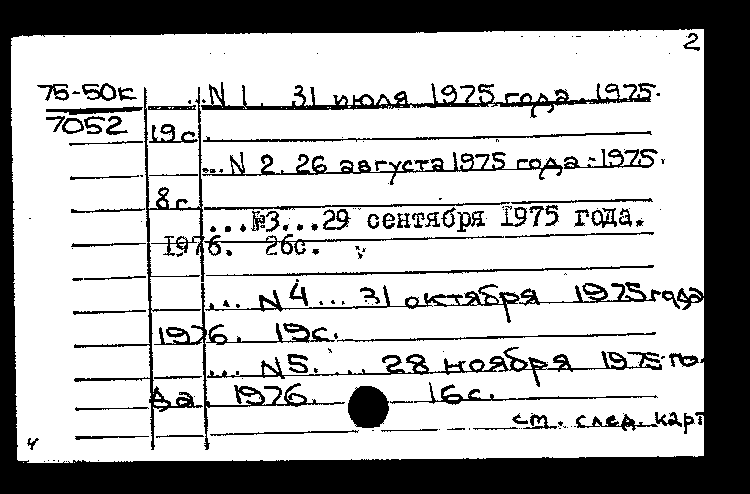 2
75-50к ...N 1. 31 июля 1975 года. 1975.
7052 19с.
...N 2. 26 августа 1975 года.-1975.
8с.
...№3...29 сентября 1975 года.
1976. 26с. v
... N 4 ... 31 октября 1975 года
1976. 19с.
... N 5. ... 28 ноября 1975 го-
да. 1976. 16с.
см. след. карт
4